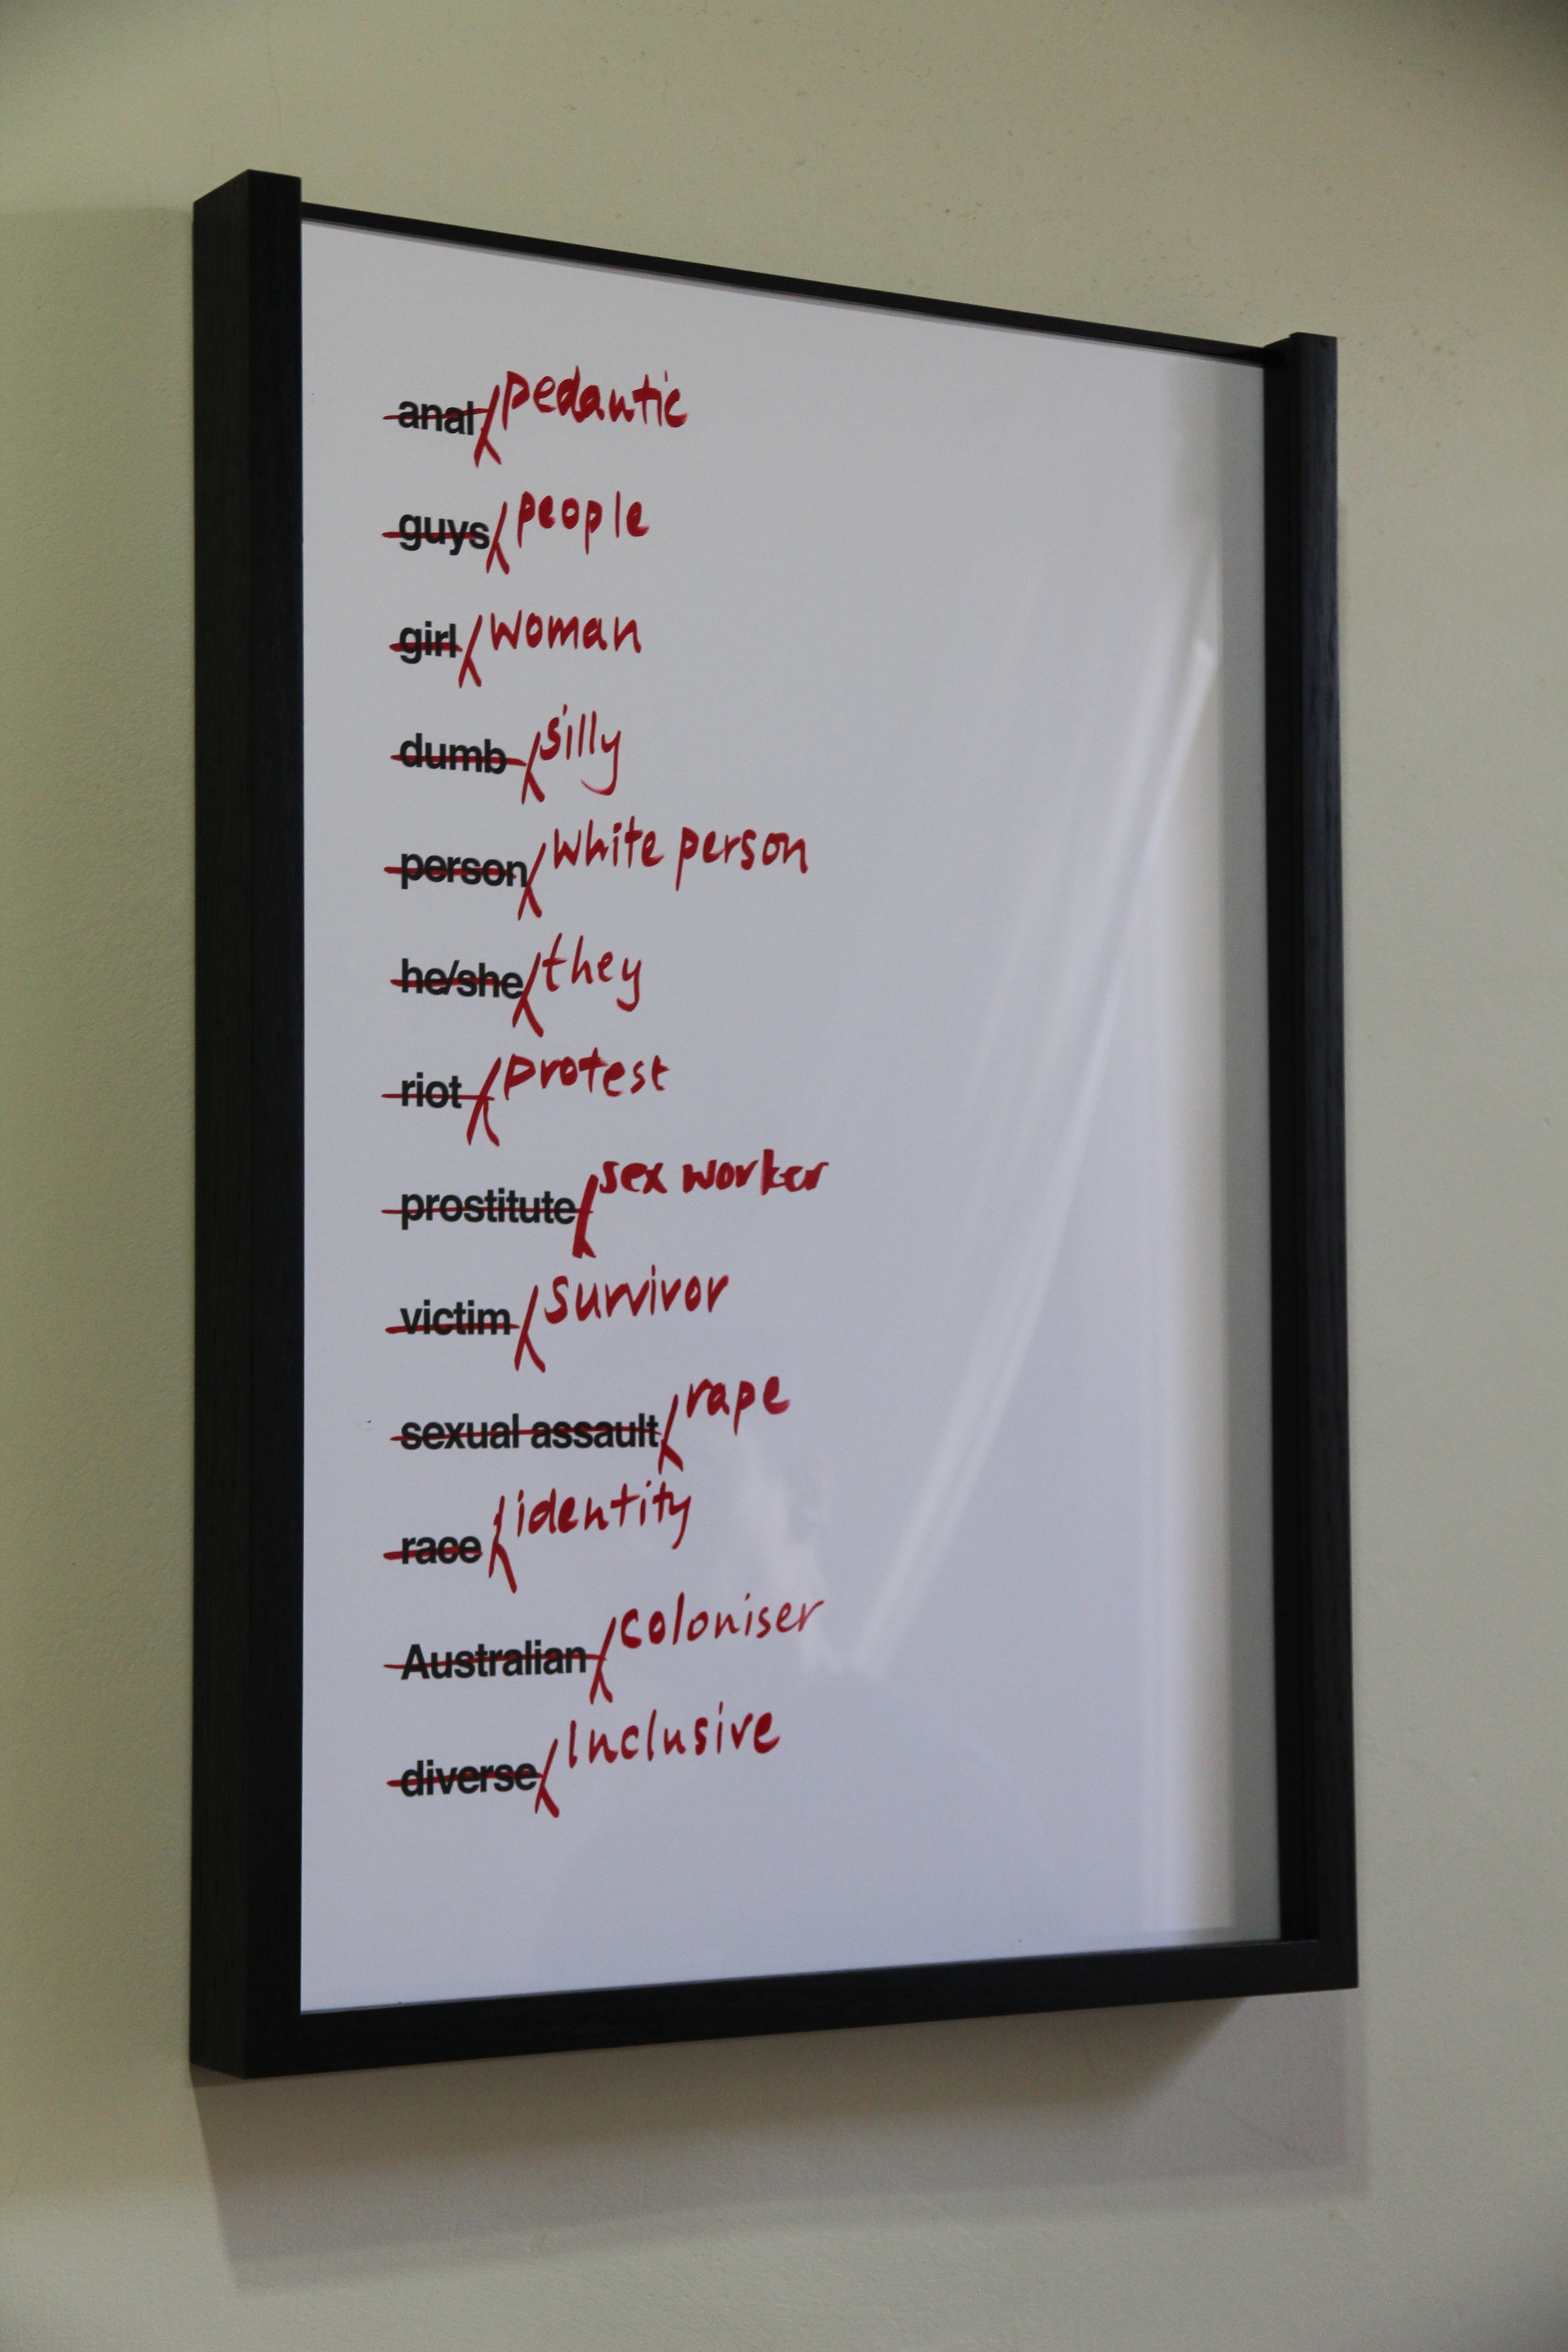 anal pedantic
guys people
girl woman
dumb silly
person white person
he/she they
riot protest
prostitute sex worker
victim survivor
sexual assault rape
race identity
Australian coloniser
diverse Inclusive